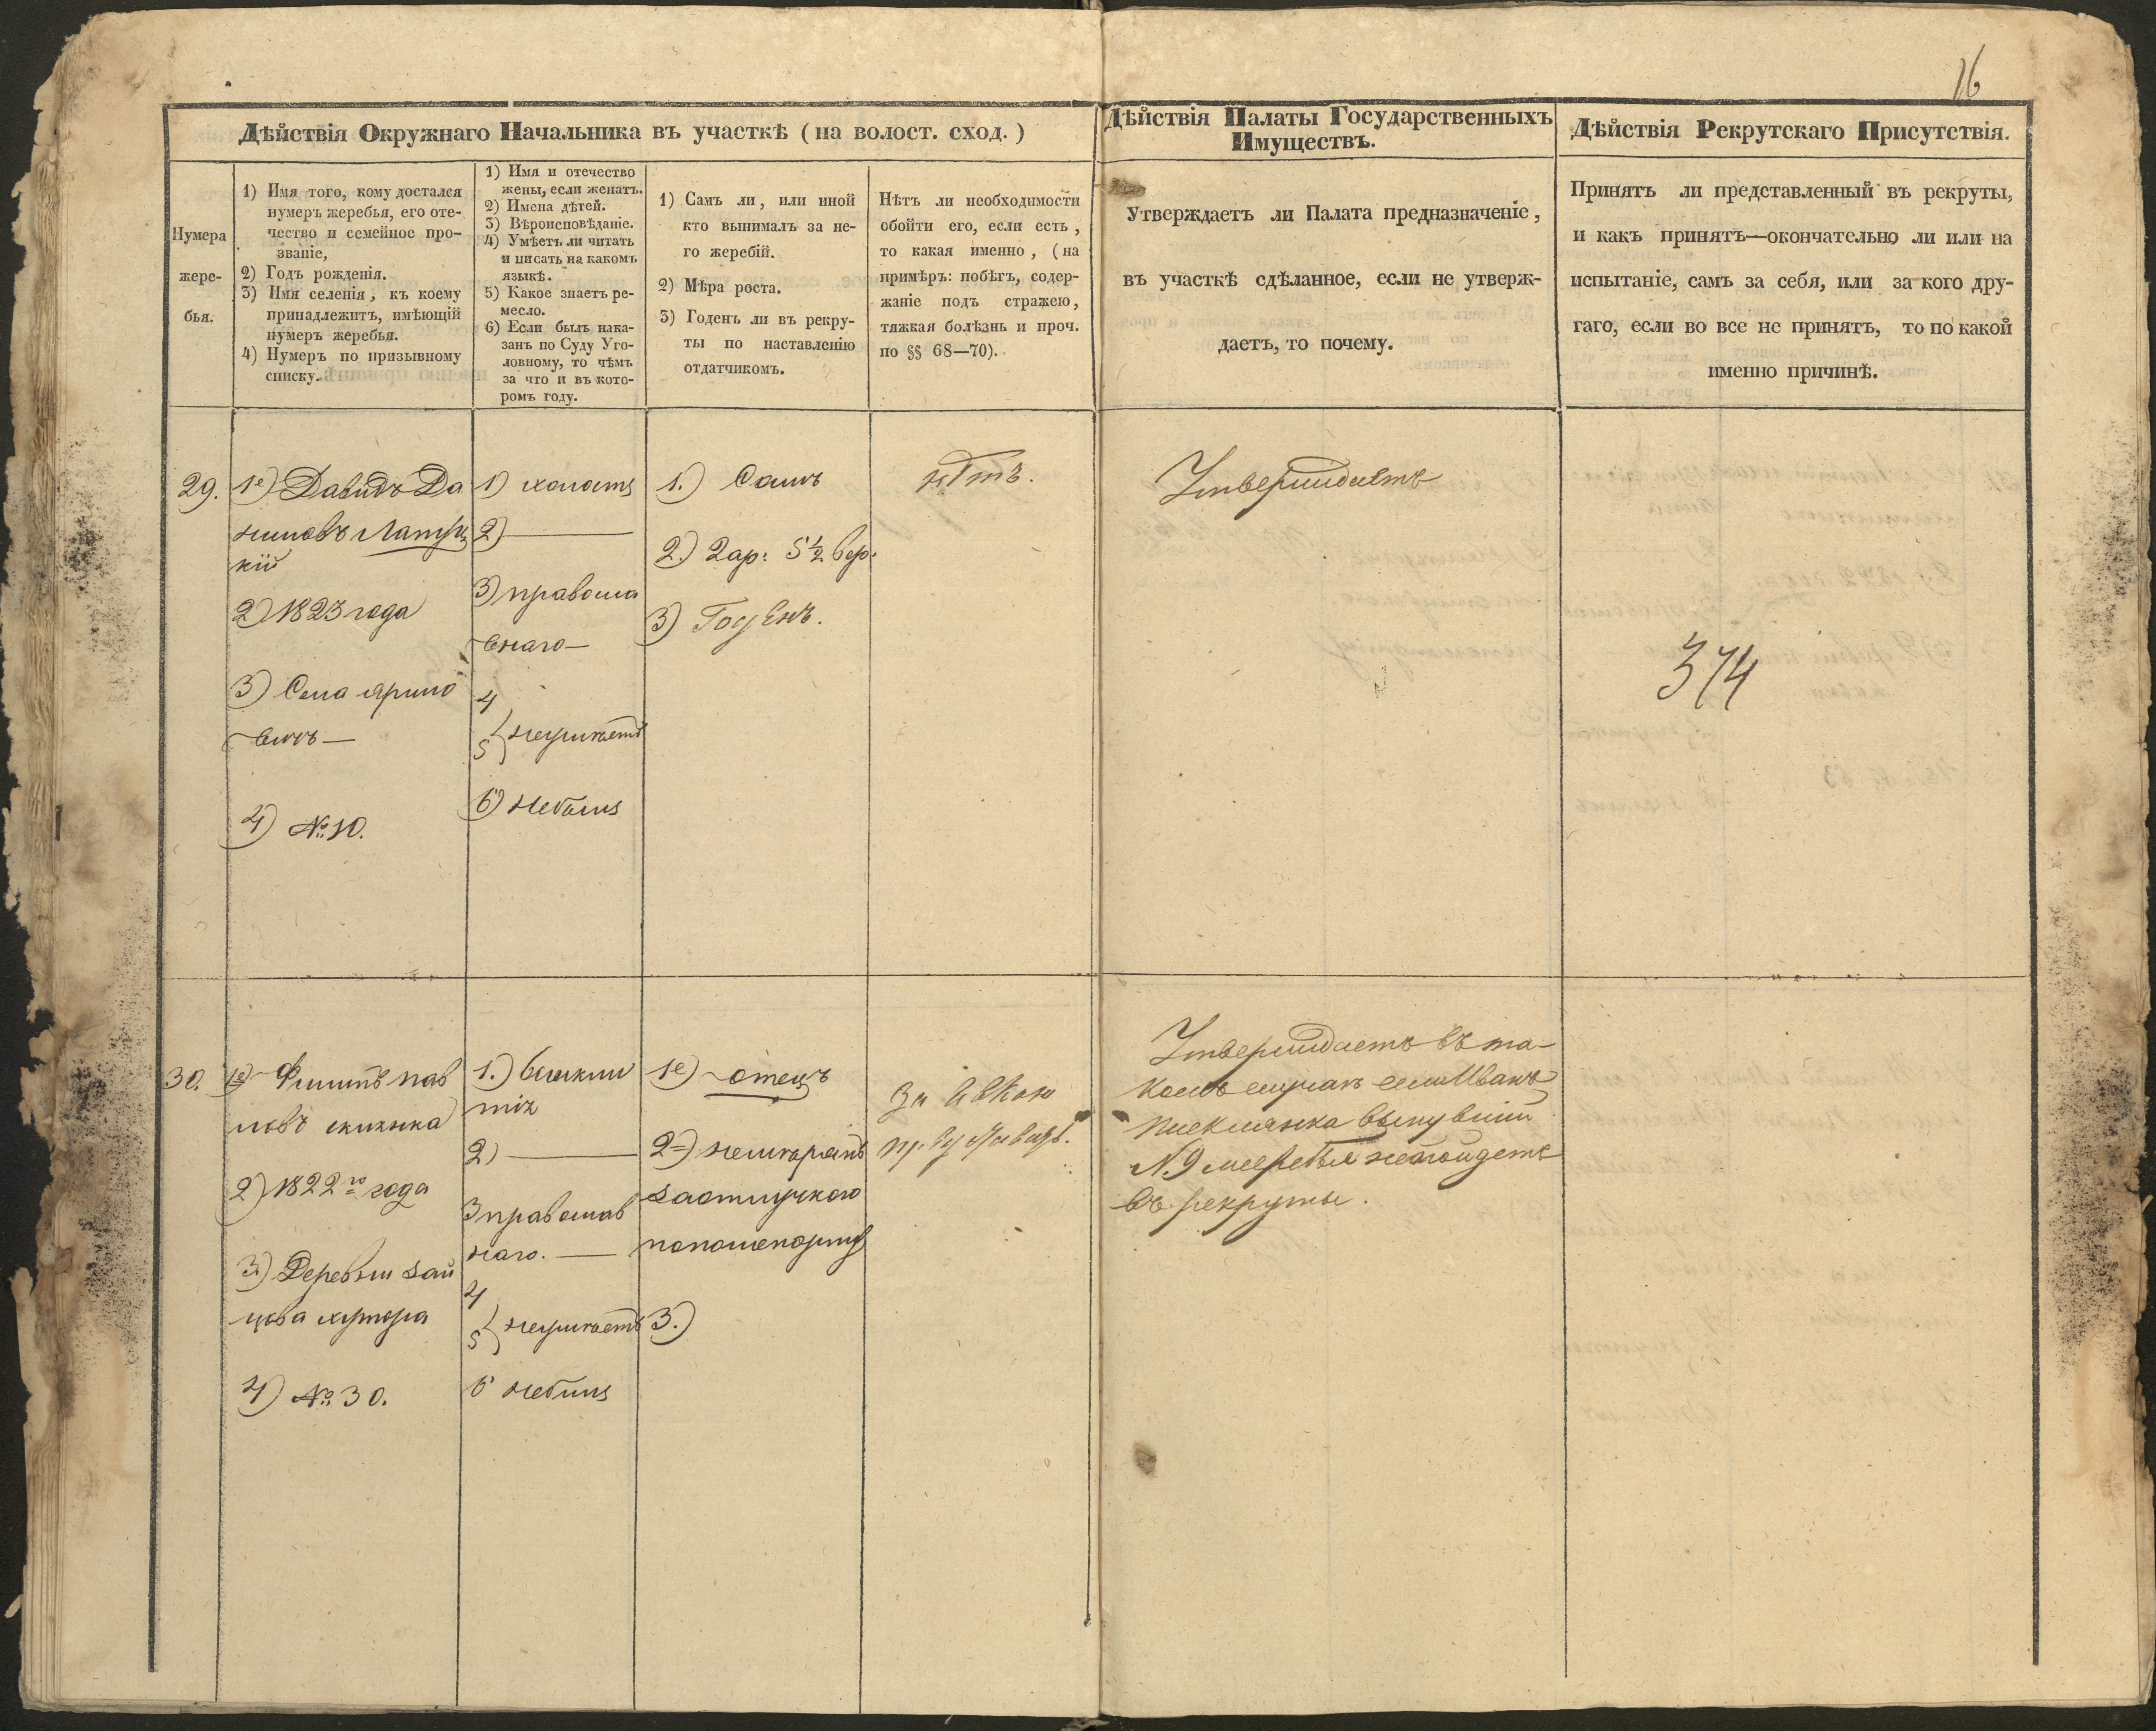 16
Дѣйствія Окружнаго Начальника въ участкѣ (на волост. сход.)
Дѣйствія Палаты Государственныхъ
Имуществъ.
Дѣйствія Рекрутскаго Присутствія.
Нумера
жере-
бья.
1) Имя того, кому достался
нумеръ жеребья, его оте-
чество и семейное про-
званіе,
2) Годъ рожденія.
3) Имя селенія, къ коему
принадлежитъ, имѣющій
нумеръ жеребья.
4) Нумеръ по призывному
списку.
1) Имя и отечество
жены, если женатъ.
2) Имена дѣтей.
3) Вѣроисповѣданіе.
4) Умѣетъ ли читать
и писать на какомъ
языкѣ.
5) Какое знаетъ ре-
месло.
6) Если былъ нака-
занъ по Суду Уго-
ловному, то чѣмъ
за что и въ кото-
ромъ году.
1) Самъ ли, или иной
кто вынималъ за не-
го жеребій.
2) Мѣра роста.
3) Годенъ ли въ рекру-
ты по наставленію
отдатчикомъ.
Нѣтъ ли необходимости
обойти его, если есть,
то какая именно, (на
примѣръ: побѣгъ, содер-
жаніе подъ стражею,
тяжкая болѣзнь и проч.
по §§ 68—70).
Утверждаетъ ли Палата предназначеніе,
въ участкѣ сдѣланное, если не утверж-
даетъ, то почему.
Принятъ ли представленный въ рекруты,
и какъ принятъ—окончательно ли или на
испытаніе, самъ за себя, или за кого дру-
гаго, если во все не принятъ, то по какой
именно причинѣ.
29.
1е) Давидъ Да
ниловъ
кій
2) 1823 года
3) Села
4) №10.
1) холостъ
2) —
3) правосла
внаго —
4
5) неумѣетъ
6) небылъ
1.) Самъ
2.) 2 ар: 5 1/2 вер:
3) Годенъ.
нѣтъ.
Утверждаетъ
374
30.
1е) Филипъ Пав
ловъ
2) 1822го года
3) Деревни Зай
цова хутора
4) №30.
1.)
2) —
3 православ
наго. —
4
5) неумѣетъ
6 небылъ
1е) отецъ
2)
3.)
за
Утверждаетъ въ та-
комъ случаѣ если Иванъ
вынувшій
N.9 жеребья не пойдетъ
въ рекруты.